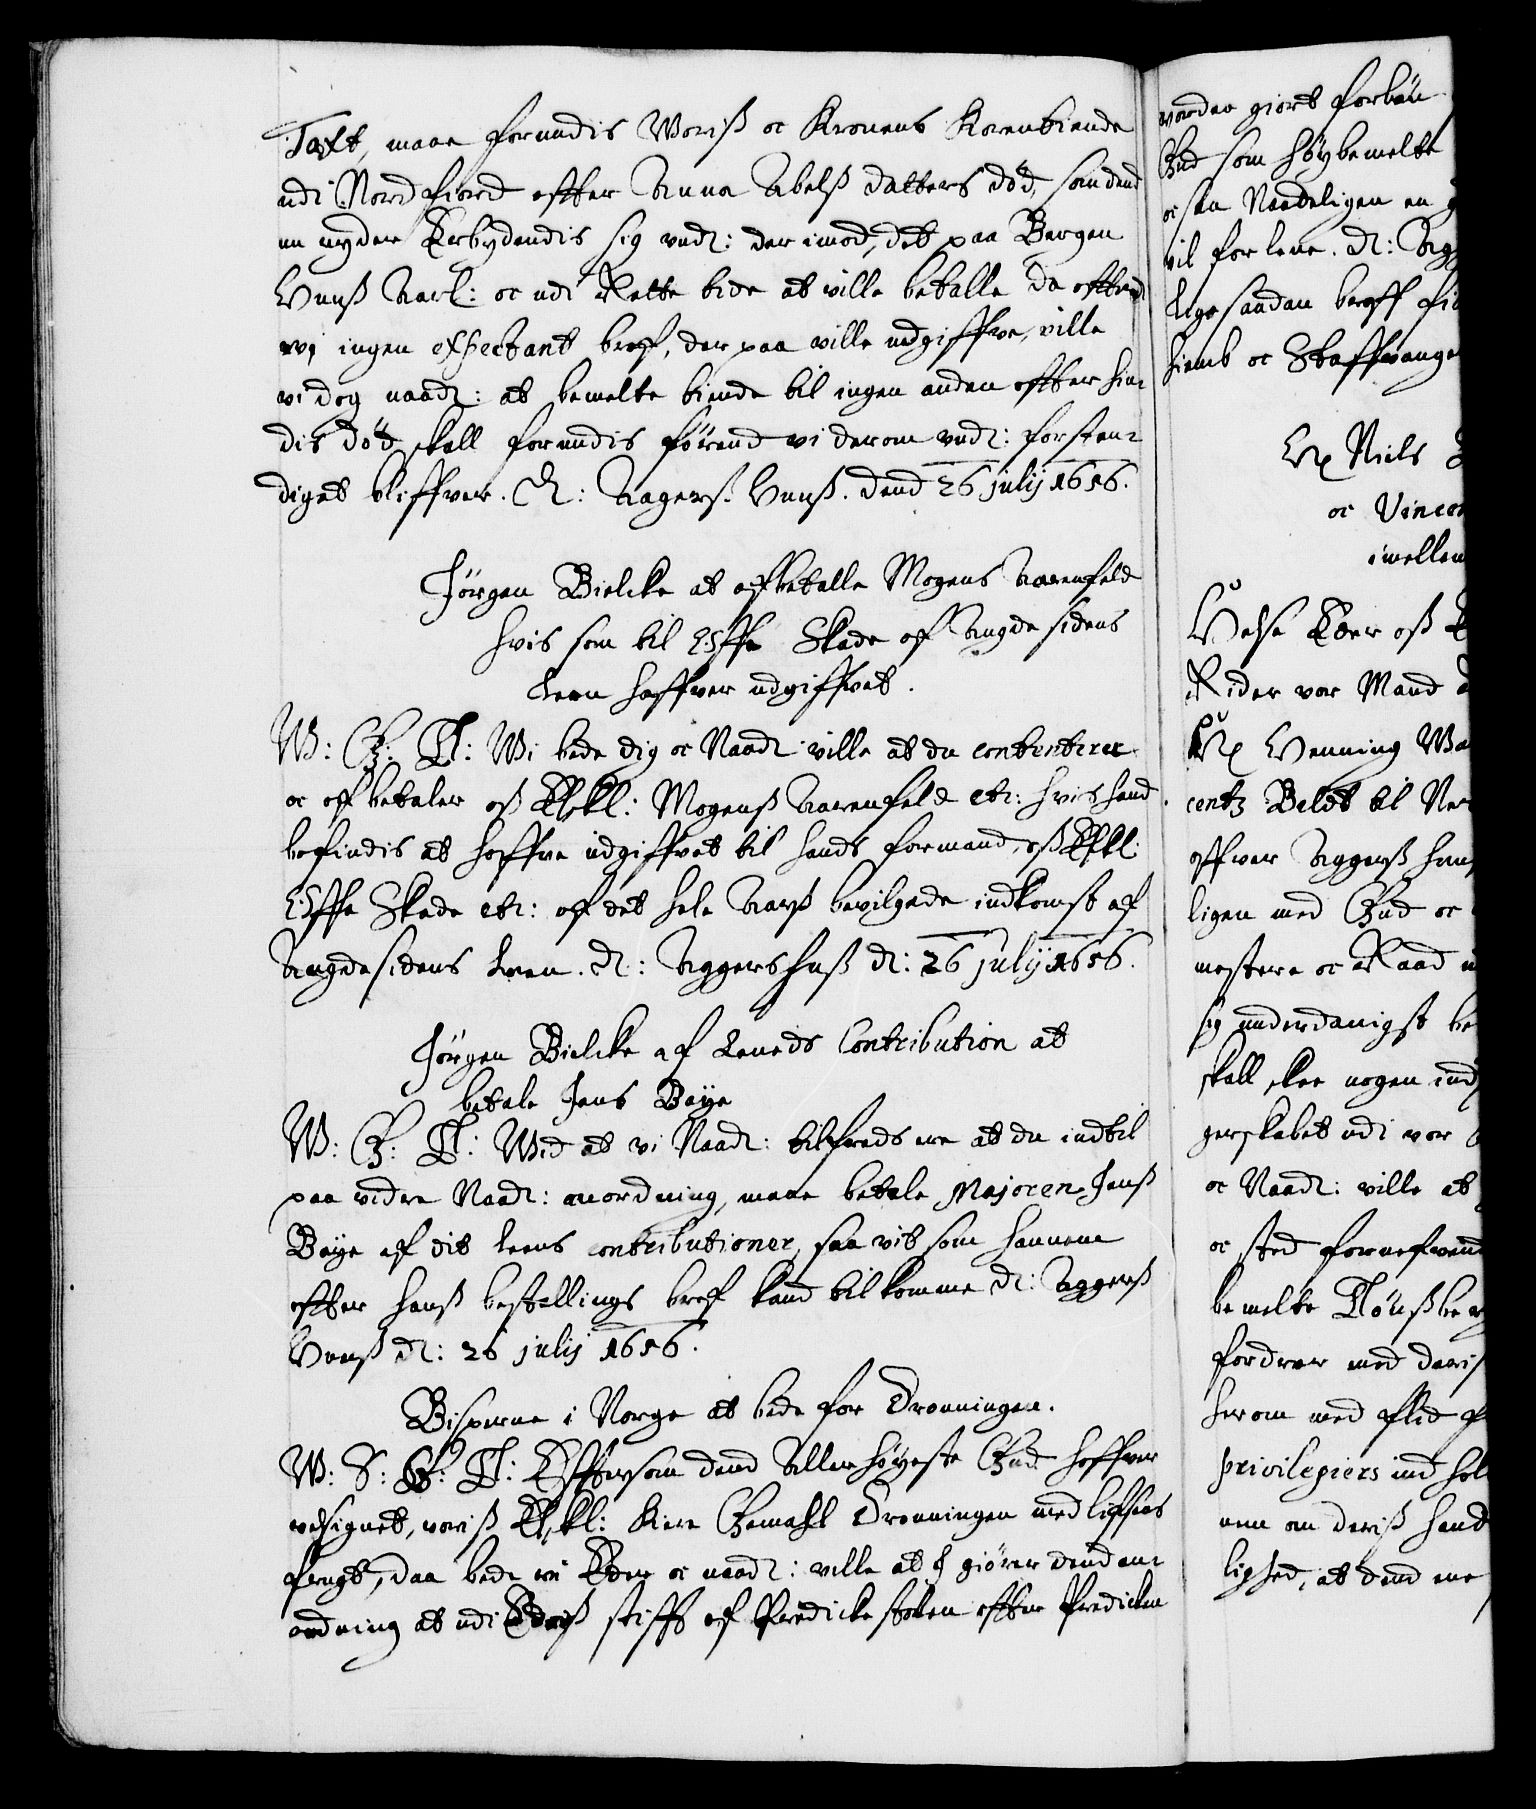 Taxt, maae forundis Woriß oc Kronens Korntiende
udi Nordfiord efter Anna Abelß datters död, som dend
nu nyder Erbydendis sig undl: der imod, det paa Bergen
Huuß Aarl: oc udi Rette tide at ville betalle Da eftersom
wi ingen expectant bref, der paa ville udgiffve, ville
vi dog naadl: at bemelte tiende til ingen anden effter hin-
dis död skall forundis förend vi derom undl: forsten-
diget bliffver. Dt: Aagerß Huuß. Dend 26 julij 1656.
Jörgen Bielcke at afbetalle Mogens Aarenfeld
hvis som til Offe Skade af Augde sidens
Leen haffver udgiffvet.
W: G: T: Wi bede dig oc Naadl: ville at du contenterer
oc afbetaler oß Elskl: Mogenß Aarenfeld etc: hvis hand
befindis at haffve udgiffvet til hands formand, oß Elskl:
Offe Skade etc: af det hele Aarß bevilgede indkomst af
Augdesidens Leen. Dt: Aggershuß d: 26 julij 1656.
Jörgen Bielcke af Leneds Contribution at
betale Jens Böye
W: G: T: Wid at vi Naadl: tilfreds ere at du indtil
paa vidre Naadl: anordning, maae betale Majoren Jenß
Böye af dit leens contributioner, saa vit som hannem
effter hanß bestellings bref kand tilkomme Dt: Aggerß
Huuß dt: 26 julij 1656.
Bisperne i Norge at bede for Dronningen.
W: S: G: T: Efftersom dend Allerhöyeste Gud haffver
velsignet, voriß Elskl: Kiere Gemahl Dronningen med liffsens
frugt, daa bede vi Eder oc naadl: ville at i giörer dend an-
ordning at udi Ederß stifft af Predickestolen effter Predicken
vorden giort forbön
Gud som höybemelte
oc saa Naadeligen en
vil forlene. Dt: Agg
Ligesaadan breff fi
hiemb oc Staffvange
Hr Niels
oc Vincen
imellem
Hvesa Kær oß
Rider vor Mand
Hr Henning Wa
centz Beldt til Ner
offver Aggerß huuß
ligen med Gud oc
mestere oc Raad u
sig underdanigst be
skall skee nogen ind
gerskabet udi vor
oc Naadl: ville at
oc sted fornefvend
bemelte Tönßber
fordrer med deriß
herom med flid
privilegiers ind hol
nem om deriß hand
lighed, at dend me